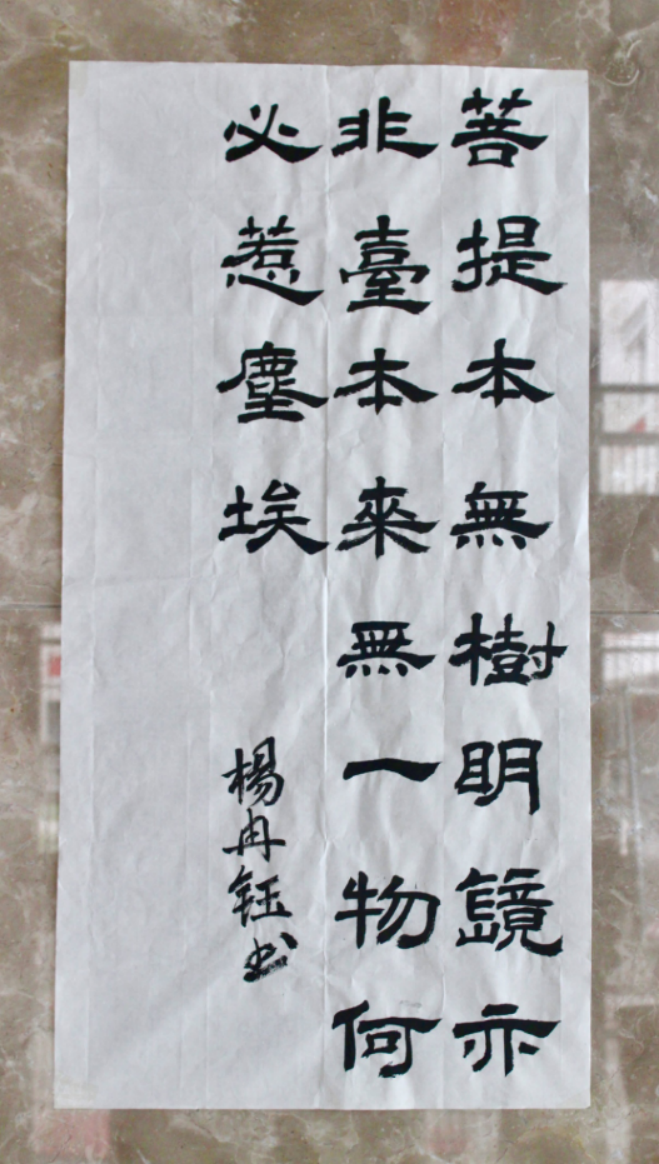 菩提本無樹明鏡亦
非臺本來無一物何
必惹塵埃
楊冉鈺书